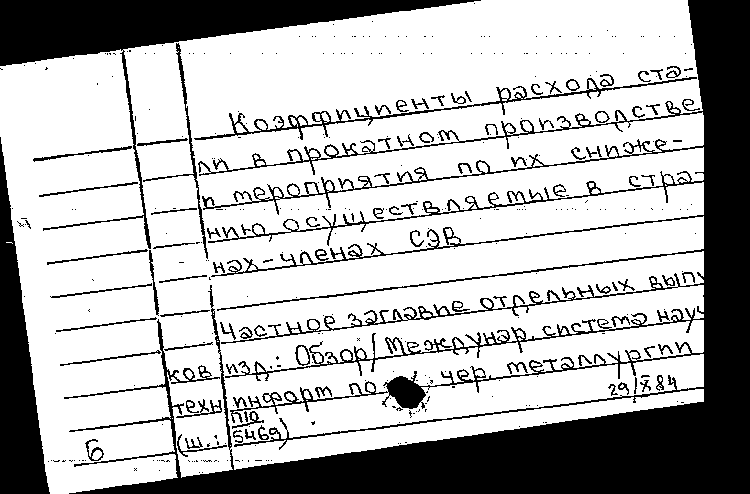 Коэффициенты расхода ста-
ли в прокатном производстве
и мероприятия по их сниже-
нию, осуществляемые в стра-
нах-членах СЭВ
Частное заглавие отдельных выпу
ков изд.: Обзор/Междунар. система науч
техн информ по чер. металлургии
29/X 84
П10
(ш.: 5469)
Б